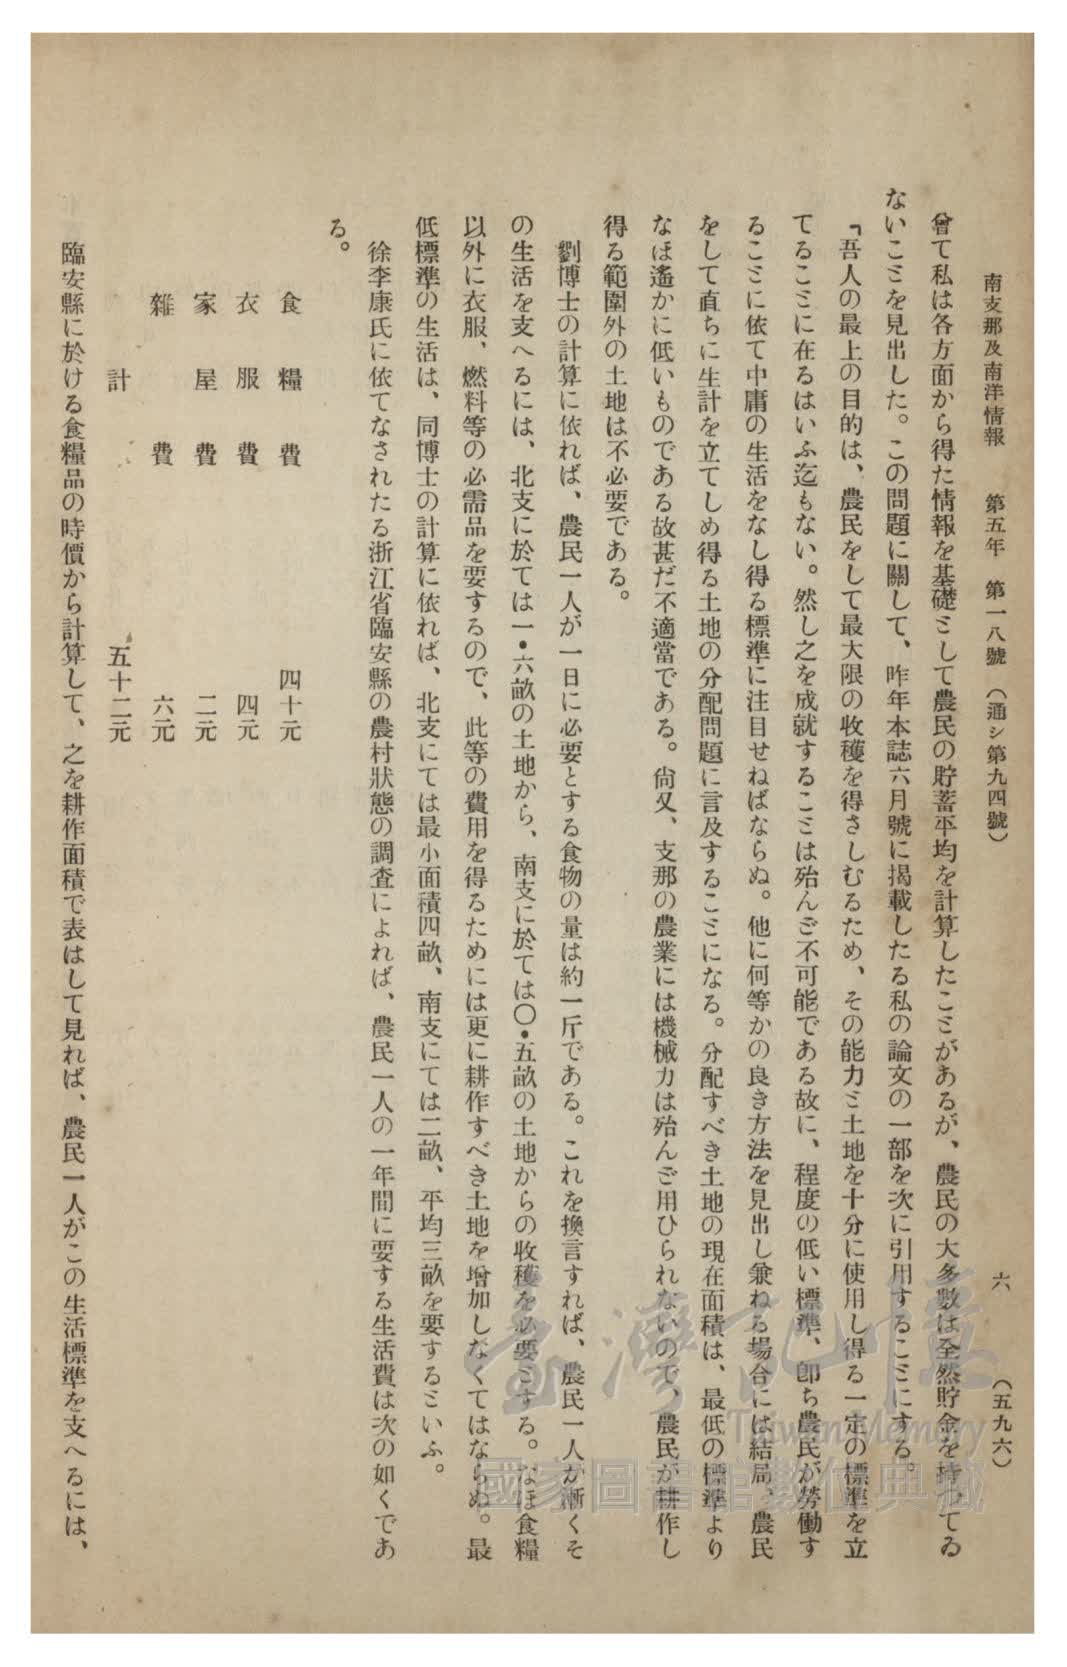 南支那及南洋情報　第五年　第一八號　（通シ第九四號）　六　（五九六）
曾て私は各方面から得た情報を基礎ミして農民の貯蓄平均を計算したこミがあるが、農民の大多數は全然貯金を持つてゐ
ないこミを見出した。この問題に關して、昨年本誌六月號に揭載したる私の論文の一部を次に引用するこミにする。
「吾人の最上の目的は、農民をして最大限の收穫を得さしむるため、その能力ミ土地を十分に使用し得る一定の標準を立
てるこミに在るはいふ迄もない。然し之を成就するこミは殆んご不可能である故に、程度の低い標準、卽ち農民が勞働す
るこミに依て中庸の生活をなし得る標準に注目せねばならぬ。他に何等かの良き方法を見出し兼ねる場合には結局、農民
をして直ちに生計を立てしめ得る土地の分配問題に言及するこミになる。分配すべき土地の現在面積は、最低の標準より
なほ遙かに低いものである故甚だ不適當である。尙又、支那の農業には機械力は殆んご用ひられないので、農民が耕作し
得る範圍外の土地は不必要である。
劉博士の計算に依れば、農民一人が一日に必要とする食物の量は約一斤である。これを換言すれば、農民一人が漸くそ
の生活を支へるには、北支に於ては一・六畝の土地から、南支に於ては〇・五畝の土地からの收穫を必要ミする。なほ食糧
以外に衣服、燃料等の必需品を要するので、此等の費用を得るためには更に耕作すべき土地を增加しなくてはならぬ。最
低標準の生活は、同博士の計算に依れば、北支にては最小面積四畝、南支にては二畝、平均三畝を要するミいふ。
徐李康氏に依てなされたる浙江省臨安縣の農村狀態の調査によれば、農民一人の一年間に要する生活費は次の如くであ
る。
食糧費　四十元
衣服費　四元
家屋費　二元
雜費　六元
計　五十二元
臨安縣に於ける食糧品の時價から計算して、之を耕作面積で表はして見れば、農民一人がこの生活標準を支へるには、
臺灣記憶
Taiwan Memory
國家圖書館數位典藏